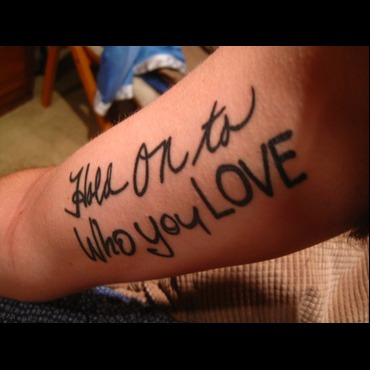 Hold On to
Who you LOVE